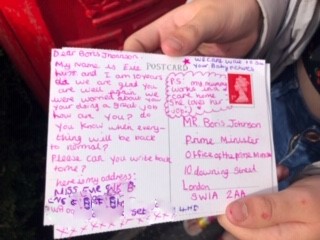 Dear Boris Jhonson.
My name is Eve
and I am 10 years
old we are glad you
are well again we
were worried about you
your doing a great job
how are you? do
you know when every-
thing will be back
to normal?
Please can you write back
to me?
here is my address:
MISS EVE
POSTCARD
PS: my mummy
works in a
care home.
She loves her
MR Boris Johnson
Prime Minister
Office of the prime Minister
10 downing Street
London
SW1A 2AA
xxxx